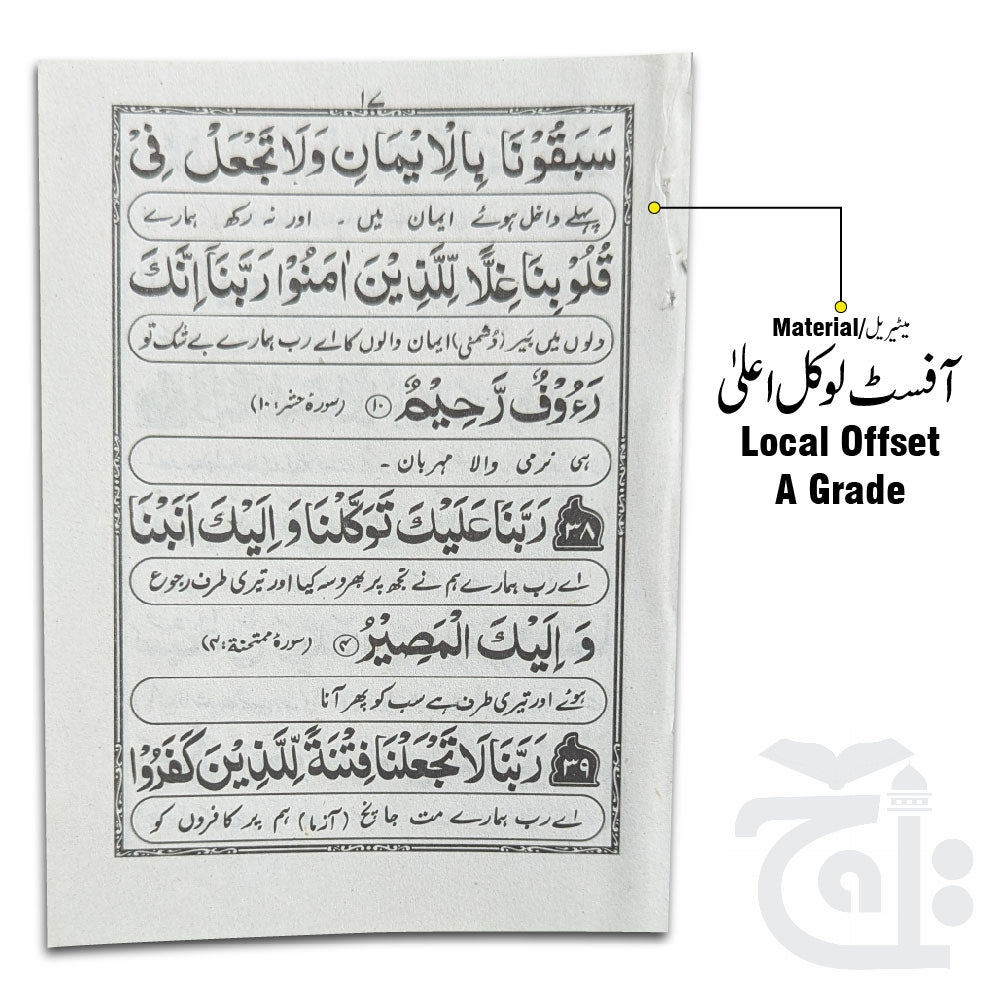 ١٧
سَبَقُوْنَا بِالْاِيْمَانِ وَلَا تَجْعَلْ فِیْ
پہلے داخل ہوئے ایمان میں ۔ اور نہ رکھ ہمارے
قُلُوْبِنَا غِلًّا لِّلَّذِيْنَ اٰمَنُوْا رَبَّنَآ اِنَّكَ
دلوں میں بَیر (دُشمنی) ایمان والوں کا اے رب ہمارے بے شک تو
رَءُوْفٌ رَّحِيْمٌ ﴿١٠﴾ (سورۃ حشر:١٠)
ہی نرمی والا مہربان -
٣٨ رَبَّنَا عَلَيْكَ تَوَكَّلْنَا وَ اِلَيْكَ اَنَبْنَا
اے رب ہمارے ہم نے تجھ پر بھروسہ کیا اور تیری طرف رجوع
وَ اِلَيْكَ الْمَصِيْرُ ﴿۴﴾ (سورۃ ممتحنة:۴)
ہوئے اور تیری طرف ہے سب کو پھر آنا
٣٩ رَبَّنَا لَا تَجْعَلْنَا فِتْنَةً لِّلَّذِيْنَ كَفَرُوْا
اے رب ہمارے مت جانچ (آزما) ہم پر کافروں کو
Material/میٹیریل
آفسٹ لوکل اعلیٰ
Local Offset
A Grade